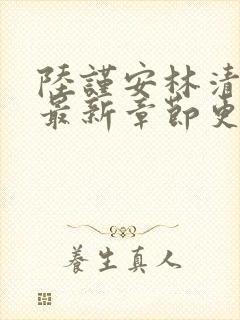 陸謹安林清
最新章節更
養生真人